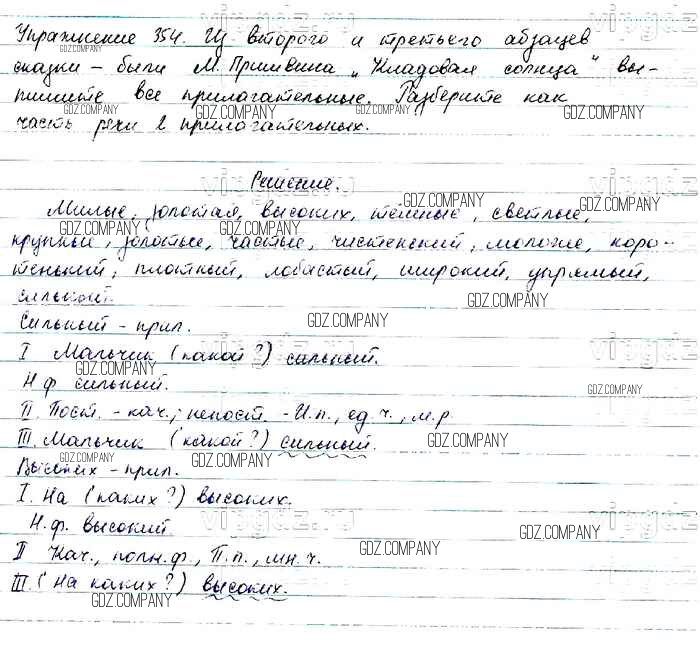 Упражнение 354. Из второго и третьего абзацев
сказки – были М. Пришвина „Кладовая солнца" вы-
пишите все прилагательные. Разберите как
часть речи 2 прилагательных.
Решение.
Милые, золотая, высоких, тёмные, светлые,
крупные, золотые, частые, чистенький, молодые, коро-
тенький, плотный, лобастый, широкий, упрямый,
сильный.
Сильный – прил.
I Мальчик (какой?) сильный.
Н.ф. сильный.
II. Пост. – кач.; непост. – И.п., ед.ч., м.р.
III. Мальчик (какой?) сильный.
Высоких – прил.
I. На (каких?) высоких.
Н.ф. высокий.
II Кач., полн.ф., П.п., мн.ч.
III. (На каких?) высоких.
GDZ.COMPANY
vipgdz.ru